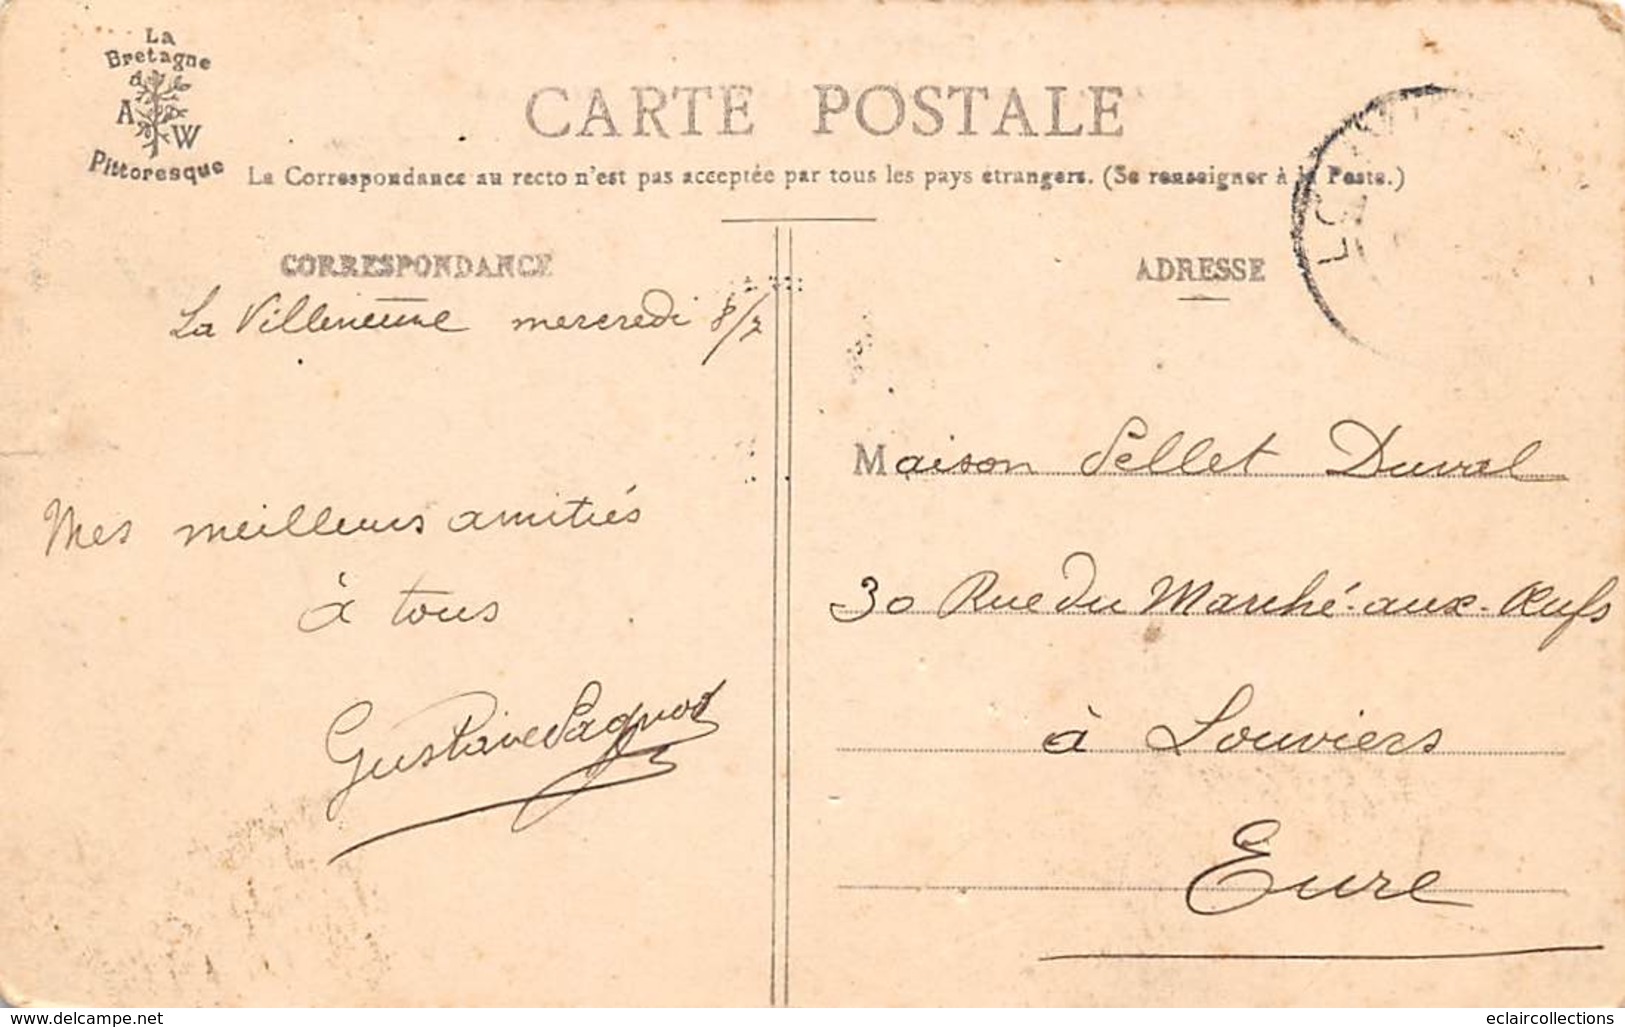 La
Bretagne
A W
Pittoresque
CARTE POSTALE
La Correspondance au recto n'est pas acceptée par tous les pays étrangers. (Se renseigner à la Poste.)
CORRESPONDANCE
La Villeneuve mercredi 8/7
Mes meilleurs amitiés
à tous
Gustave
ADRESSE
Maison Pellet Duval
30 Rue du Marché-aux-Œufs
à Louviers
Eure
www.delcampe.net
eclaircollections